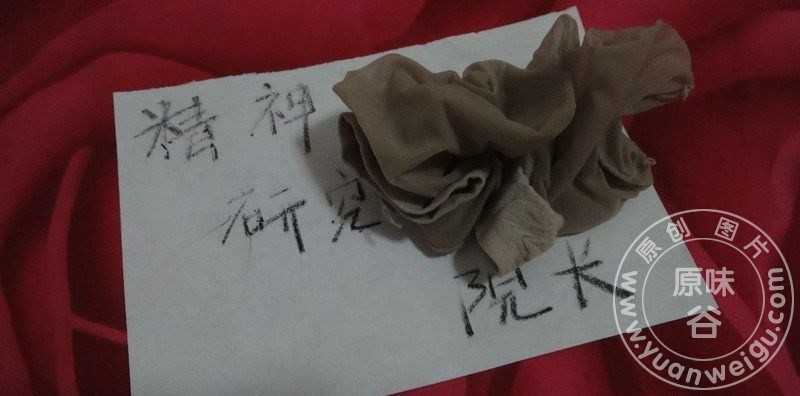 精神
研究
院长
原创图片
原味
谷
www.yuanweigu.com